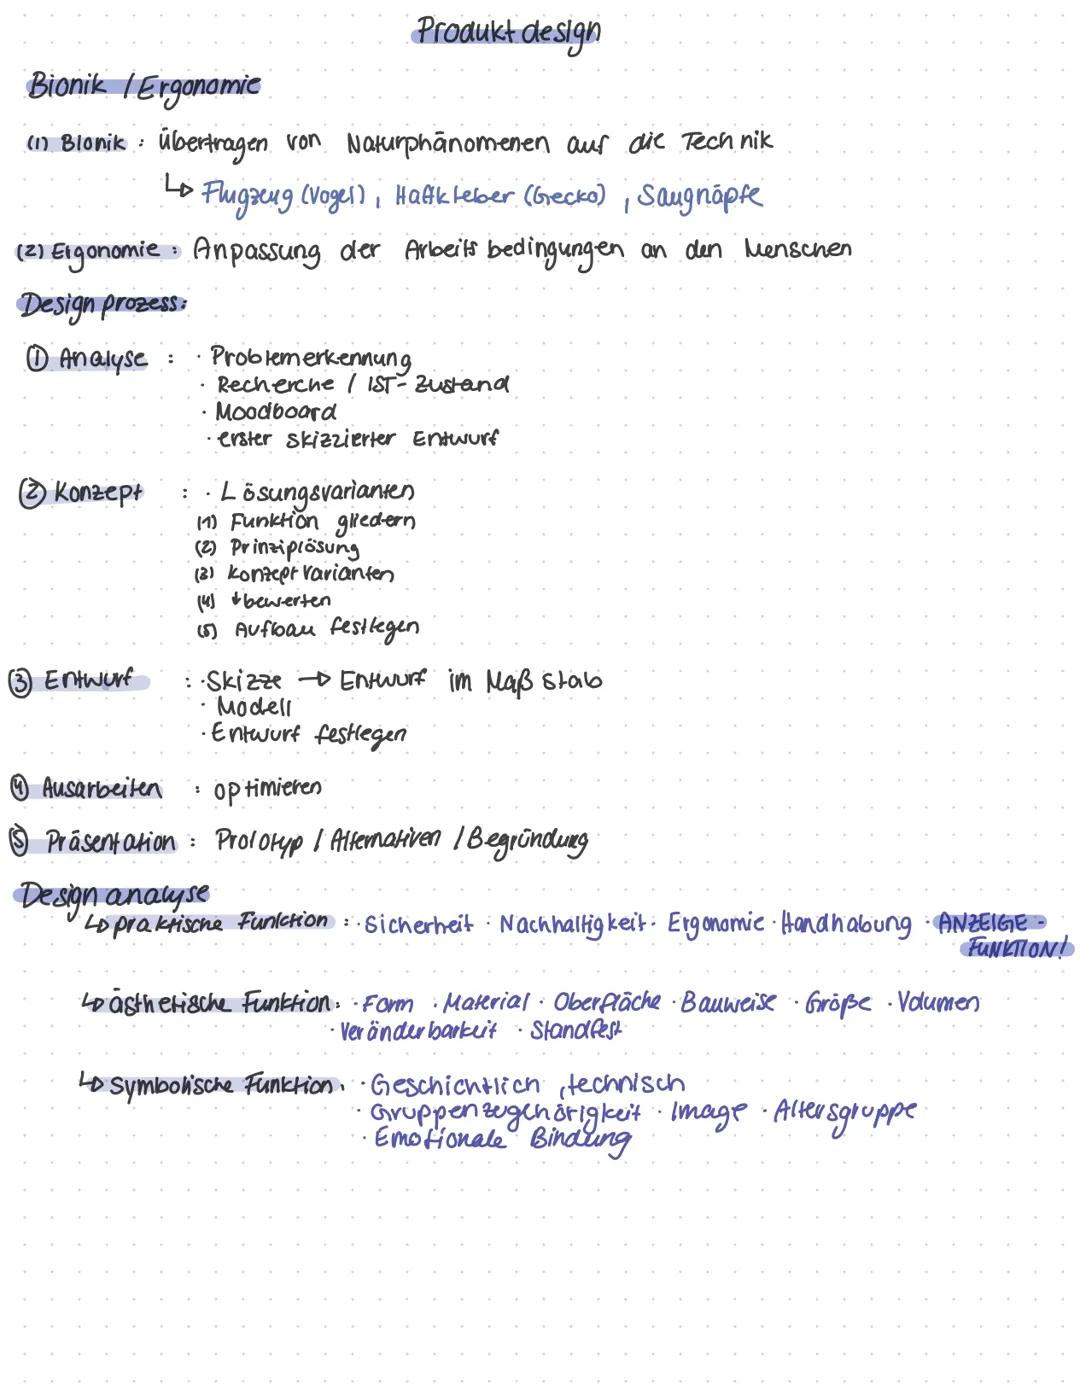 Produktdesign
Bionik / Ergonomie
(1) Bionik : Übertragen von Naturphänomenen auf die Technik
↳ Flugzeug (Vogel), Haftkleber (Gecko), Saugnäpfe
(2) Ergonomie : Anpassung der Arbeitsbedingungen an den Menschen
Designprozess:
① Analyse : · Problemerkennung
· Recherche / IST-Zustand
· Moodboard
· erster skizzierter Entwurf
② Konzept : · Lösungsvarianten
(1) Funktion gliedern
(2) Prinziplösung
(3) Konzeptvarianten
(4) ↓ bewerten
(5) Aufbau festlegen
③ Entwurf : · Skizze → Entwurf im Maßstab
· Modell
· Entwurf festlegen
④ Ausarbeiten : optimieren
⑤ Präsentation : Prototyp / Alternativen / Begründung
Designanalyse
↳ praktische Funktion : · Sicherheit · Nachhaltigkeit · Ergonomie · Handhabung · ANZEIGE-
FUNKTION!
↳ ästhetische Funktion: · Form · Material · Oberfläche · Bauweise · Größe · Volumen
· Veränderbarkeit · Standfest
↳ Symbolische Funktion: · Geschichtlich, technisch
· Gruppenzugehörigkeit · Image · Altersgruppe
· Emotionale Bindung